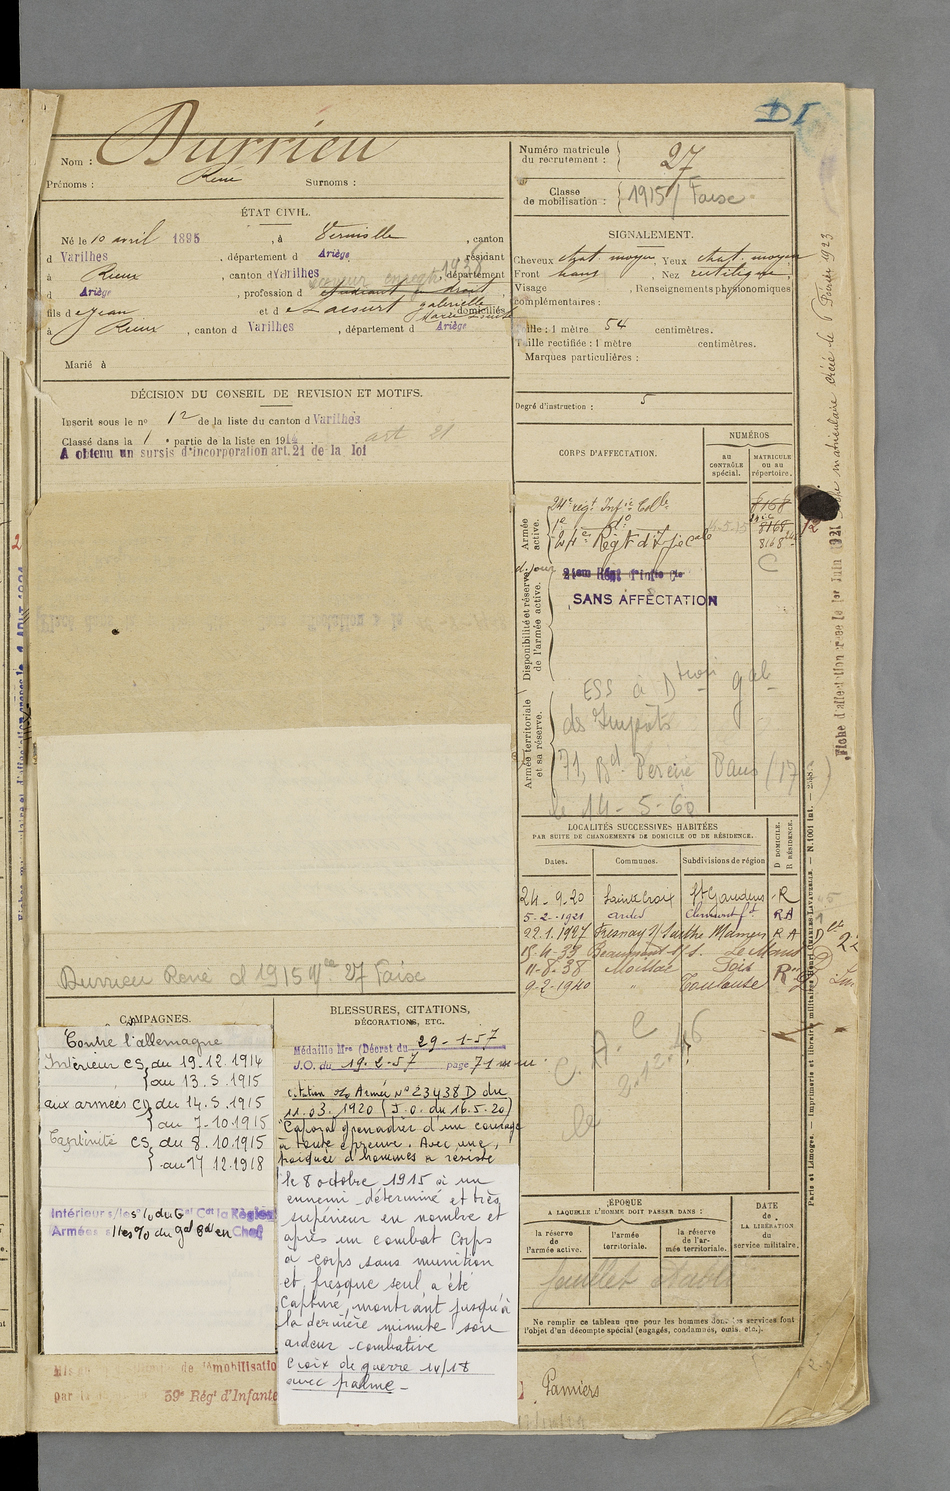 DI
Nom : Durrieu
Prénoms : René Surnoms :
ÉTAT CIVIL.
Né le 10 avril 1895, à Verniolle, canton
d Varilhes, département d Ariège, résidant
à Rieux, canton d Varilhes, département
d Ariège, profession d étudiant en droit,
1938
fils de Jean et de Lacsurt gabrielle domiciliés
à Rieux, canton d Varilhes, département d Ariège
Marié à
DÉCISION DU CONSEIL DE REVISION ET MOTIFS.
Inscrit sous le no 12 de la liste du canton d Varilhes
Classé dans la 1 e partie de la liste en 1914 art 21
A obtenu un sursis d'incorporation art. 21 de la loi
Durrieu René cl 1915 Mle 27 Faisc
CAMPAGNES.
Contre l'allemagne
Intérieur CS, du 19.12.1914
au 13.5.1915
aux armées CD du 14.5.1915
au 7-10.1915
Captivité CS, du 8.10.1915
au 17 12.1918
Intérieur s/les % du Gal Ct la Région
Armées s/les % du gal Cd en Chef
de démobilisation
39e Rég' d'Infante
BLESSURES, CITATIONS,
DÉCORATIONS, ETC.
Médaille Mre (Décret du 29-1-57
J.O. du 19.2-57 page 71
Citation o/o Armée No 23438 D du
11.03.1920 (J.O. du 16.5.20)
"Caporal grenadier d'un courage
à toute épreuve. Avec une
poignée d'hommes a résisté
le 8 octobre 1915 à un
ennemi déterminé et très
supérieur en nombre et
après un combat Corps
à corps sans munition
et presque seul a été
Capturé, montrant jusqu'à
la dernière minute son
ardeur combative
Croix de guerre 14/18
avec palme -
Numéro matricule
du recrutement : 27
Classe
de mobilisation : 1915 / Faisc
SIGNALEMENT.
Cheveux chat. moyen Yeux chat. moyen
Front haut, Nez rectiligne,
Visage , Renseignements physionomiques
complémentaires :
Taille : 1 mètre 54 centimètres.
Taille rectifiée : 1 mètre centimètres.
Marques particulières :
Degré d'instruction : 5
CORPS D'AFFECTATION.
NUMÉROS
AU CONTRÔLE spécial.
MATRICULE OU AU répertoire.
Armée active.
24e régt Infie Colle
8168
1er do
8168
24e Régt d'Ifie cale
8168
12
C
Disponibilité et réserve de l'armée active.
24em Régt d'Infie Cle
SANS AFFECTATION
Armée territoriale et sa réserve.
ESS à Dtion gale
des Impôts
71, Bd Pereire Paris (17
le 14-5-60
LOCALITÉS SUCCESSIVES HABITÉES
PAR SUITE DE CHANGEMENTS DE DOMICILE OU DE RÉSIDENCE.
Dates. Communes. Subdivisions de région D DOMICILE. R RÉSIDENCE.
24-9-20 Sainte Croix St Gaudens R
5-2-1921 Clermont Ft RA
22.1.1927 Fresnay s/ Sarthe Mamers RA
18-4-33 Beaumont s/s. Le Mans
11-8-38 Moissac
9-2-1940 " Toulouse R
C.A.C
le 3.12.46
ÉPOQUE
A LAQUELLE L'HOMME DOIT PASSER DANS :
la réserve de l'armée active.
l'armée territoriale.
la réserve de l'armée territoriale.
DATE de LA LIBÉRATION du service militaire.
feuillet établi
Ne remplir ce tableau que pour les hommes dont les services font
l'objet d'un décompte spécial (engagés, condamnés, omis, etc.).
Pamiers
Fiche matriculaire créée le 6 Février 1923
Fiche d'affectation créée le 1er Juin 1921
Paris et Limoges. — Imprimerie et librairie militaires Henri CHARLES-LAVAUZELLE. — N. 1001 int. —